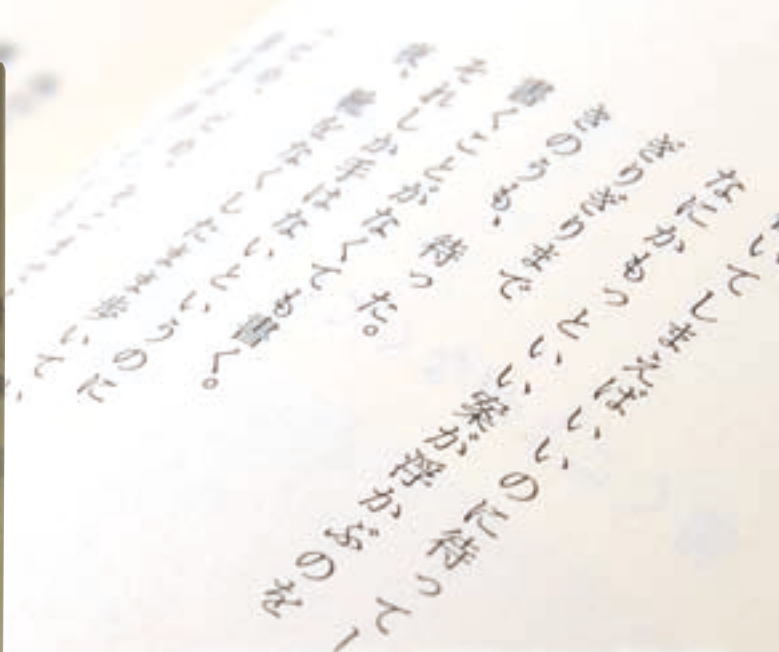 いてしまえばいいのに待って
なにかもっといい案が浮かぶのを
ぎりぎりまで
きのうも、　待った。
書くことがなくても書く。
それしか手はないというのに
夜、　靴をなくしたまま歩いてい